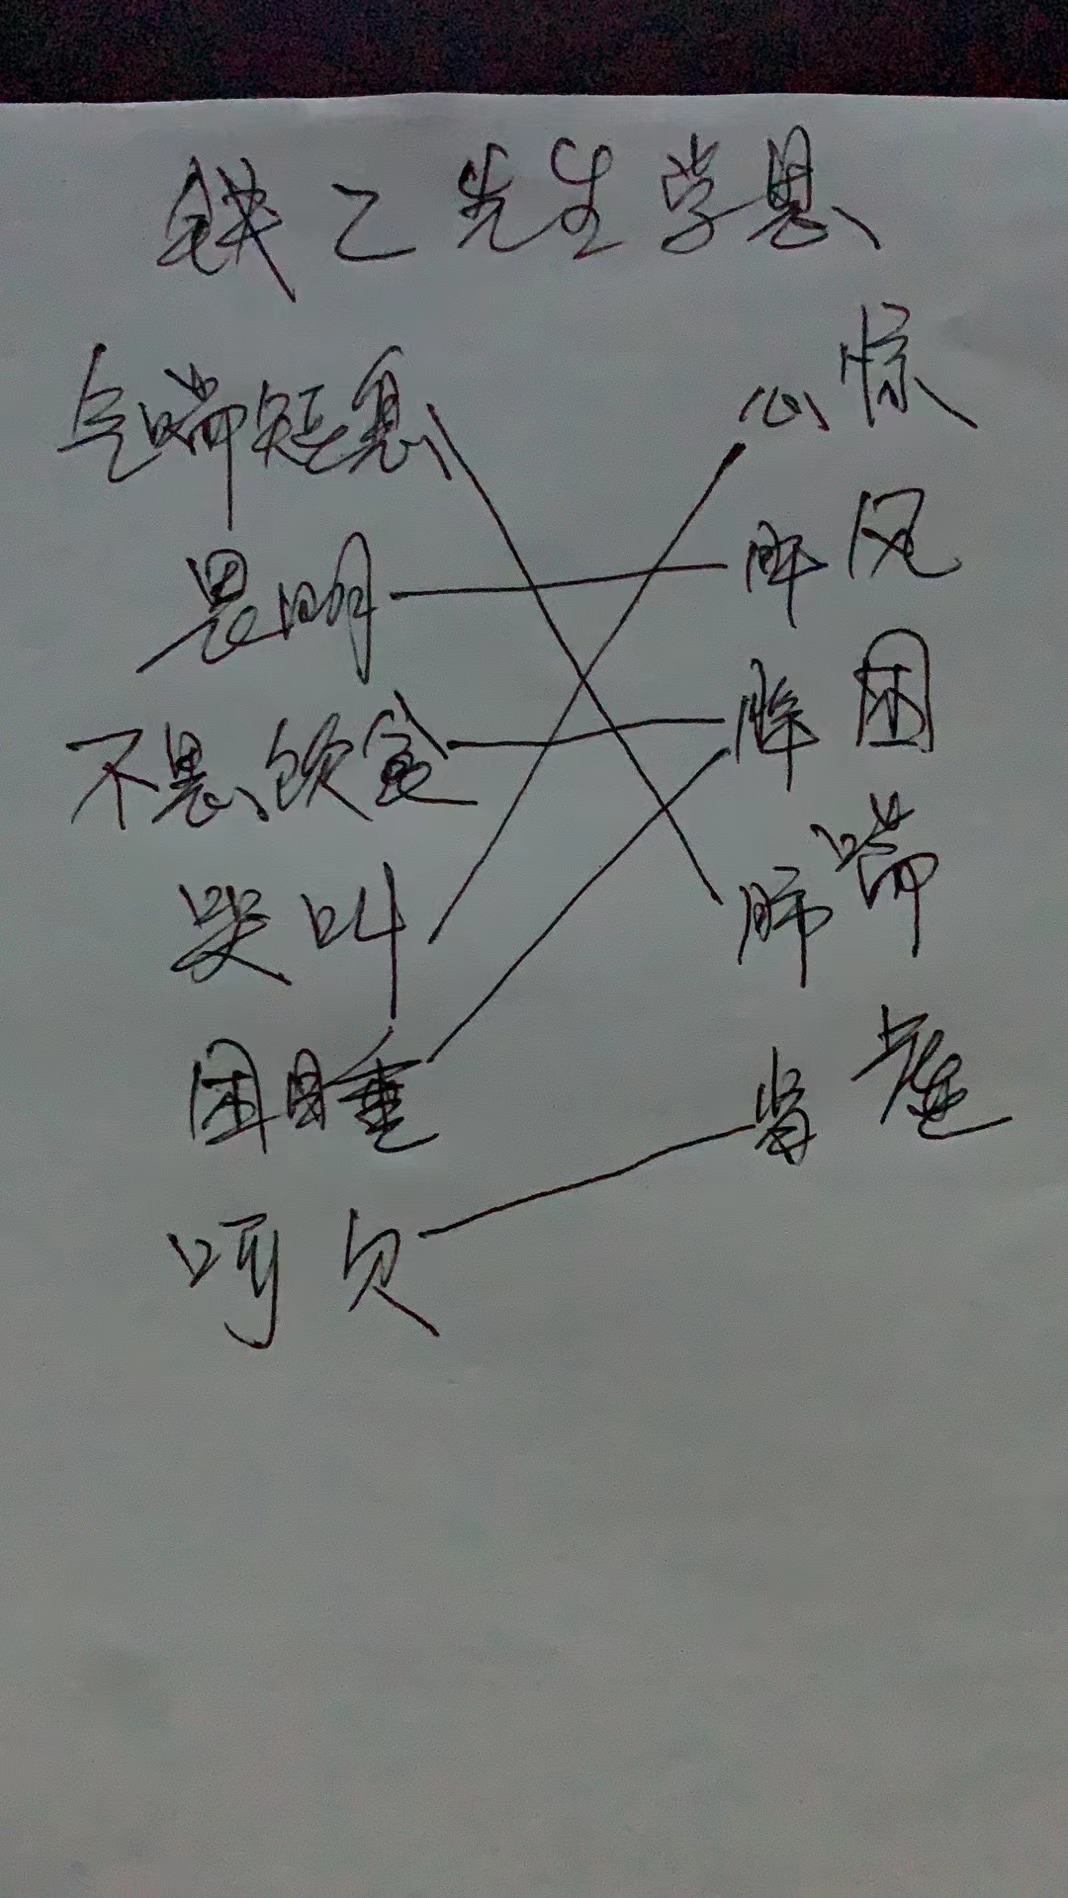 钱乙先生学思
气喘短息 心惊
畏明 肝风
不思饮食 脾困
哭叫 肺喘
困睡 肾虚
呵欠